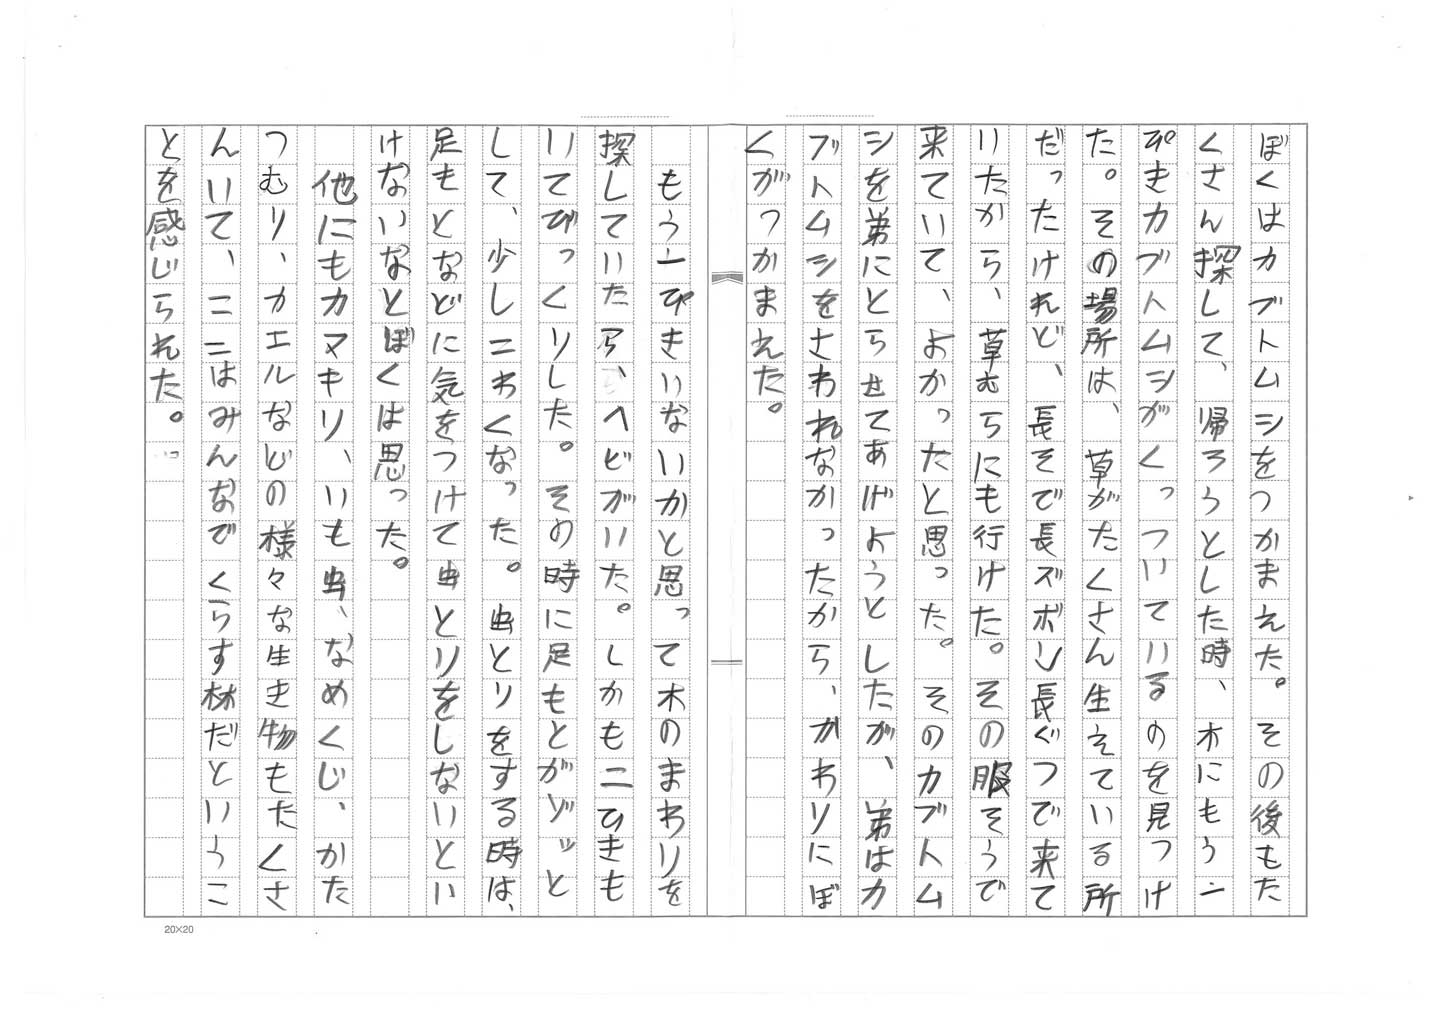 ぼくはカブトムシをつかまえた。その後もた
くさん探して、帰ろうとした時、木にもう一
ぴきカブトムシがくっついているのを見つけ
た。その場所は、草がたくさん生えている所
だったけれど、長そで長ズボン長ぐつで来て
いたから、草むらにも行けた。その服そうで
来ていて、よかったと思った。そのカブトム
シを弟にとらせてあげようとしたが、弟はカ
ブトムシをさわれなかったから、かわりにぼ
くがつかまえた。
もう一ぴきいないかと思って木のまわりを
探していたら、ヘビがいた。しかも二ひきも
いてびっくりした。その時に足もとがゾッと
して、少しこわくなった。虫とりをする時は、
足もとなどに気をつけて虫とりをしないとい
けないなとぼくは思った。
他にもカマキリ、いも虫、なめくじ、かた
つむり、カエルなどの様々な生き物もたくさ
んいて、ここはみんなでくらす林だというこ
とを感じられた。
20×20